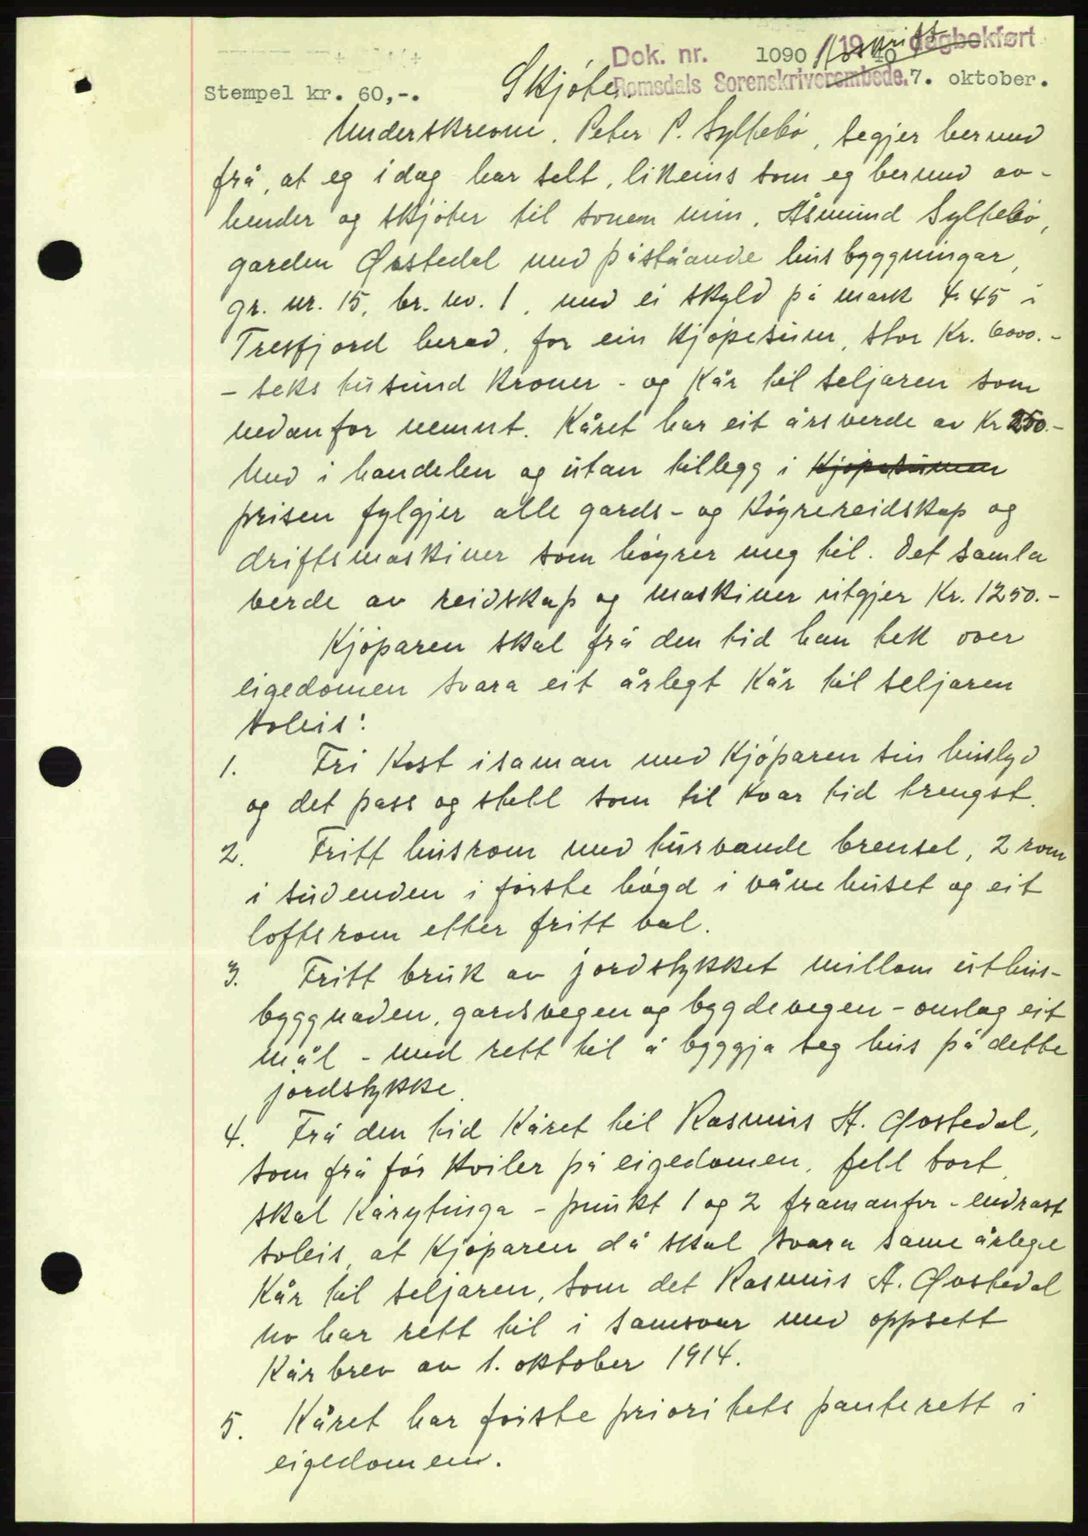 Dok. nr. 1090 1940 dagbokført
Avskrift
Stempel kr. 60,-. Skjøte. Romsdals Sorenskriverembede. 7. oktober.
Underskrevne, Peter P. Syltebø, segjer hermed
frå, at eg idag har selt, likeins som eg hermed av-
hender og skjøter til sonen min, Åsmund Syltebø,
garden Øvstedal med påståande husbyggningar,
gr. nr. 15, br. nr. 1, med ei skyld på mark 4.45 i
Tresfjord herad, for ein kjøpesum, stor Kr. 6000.-
- seks tusund kroner - og kår til seljaren som
nedanfor nemnt. Kåret har eit årsverde av Kr 250.-
Med i handelen og utan tillegg i kjøpesummen
prisen fylgjer alle gards- og køyrereidskap og
driftsmaskiner som høyrer meg til. Det samla
verde av reidskap og maskiner utgjer Kr. 1250.-
Kjøparen skal frå den tid han tek over
eigedomen svara eit årlegt kår til seljaren
soleis:
1. Fri kost isaman med kjøparen sin huslyd
og det pass og stell som til kvar tid trengst.
2. Fritt husrom med turvande brensel, 2 rom
i sudenden i første høgd i vånehuset og eit
loftsrom etter fritt val.
3. Fritt bruk av jordstykket millom uthus-
byggnaden, gardsvegen og bygdevegen - onslag eit
mål - med rett til å byggja seg hus på dette
jordstykke.
4. Frå den tid kåret til Rasmus A. Øvstedal,
som frå før kviler på eigedomen, fell bort,
skal kårytinga - punkt 1 og 2 framanfor - endrast
soleis, at kjøparen då skal svara same årlege
kår til seljaren, som det Rasmus A. Øvstedal
no har rett til i samsvar med oppsett
kårbrev av 1. oktober 1914.
5. Kåret har første prioritets panterett i
eigedomen.